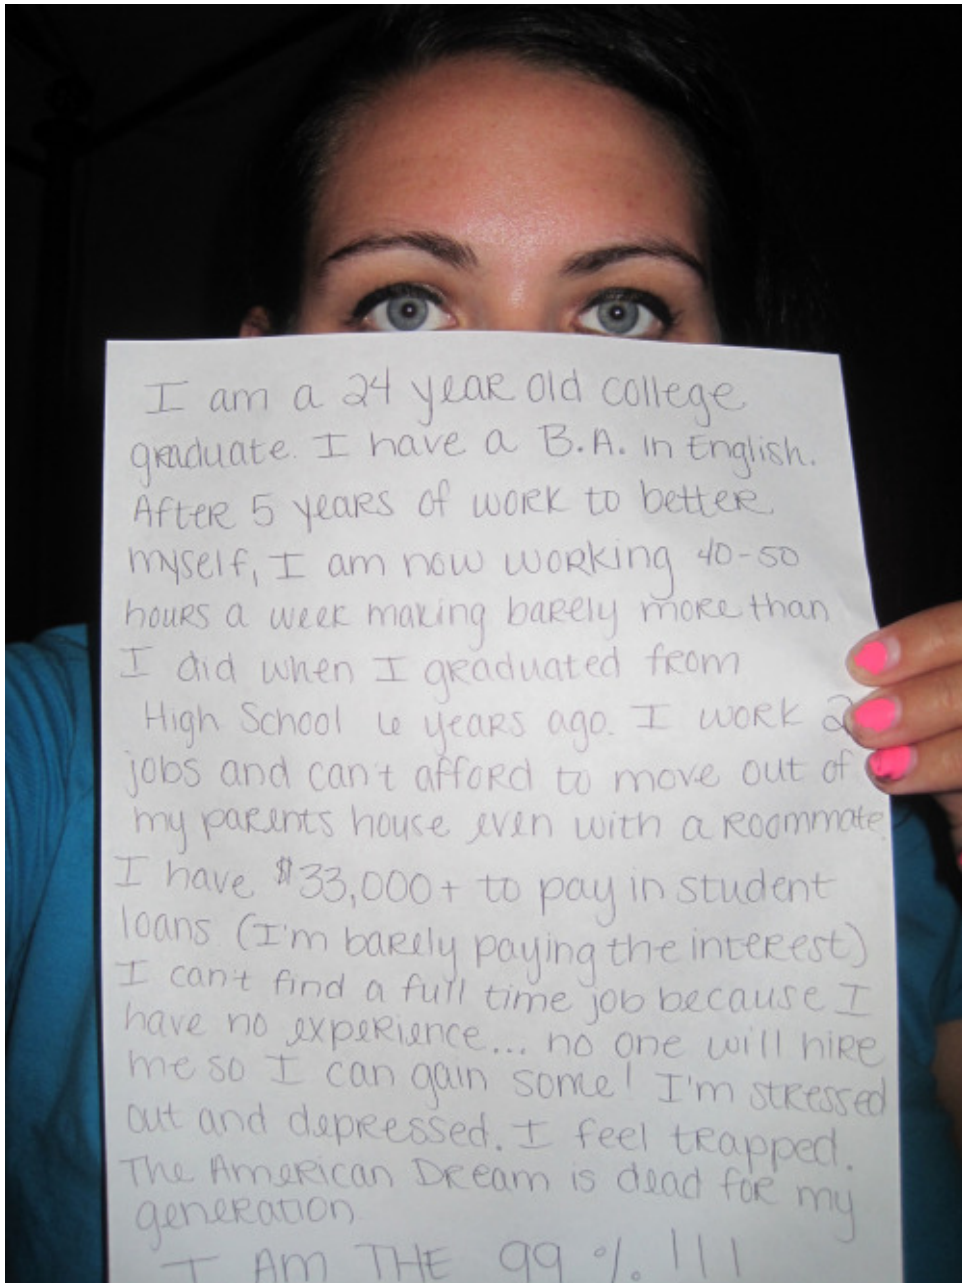 I am a 24 year old college
graduate. I have a B.A. in English.
After 5 years of work to better
myself, I am now working 40-50
hours a week making barely more than
I did when I graduated from
High School 6 years ago. I work 2
jobs and can't afford to move out of
my parents house even with a roommate.
I have $33,000+ to pay in student
loans (I'm barely paying the interest)
I can't find a full time job because I
have no experience... no one will hire
me so I can gain some! I'm stressed
out and depressed. I feel trapped.
The American Dream is dead for my
generation
I AM THE 99 % !!!